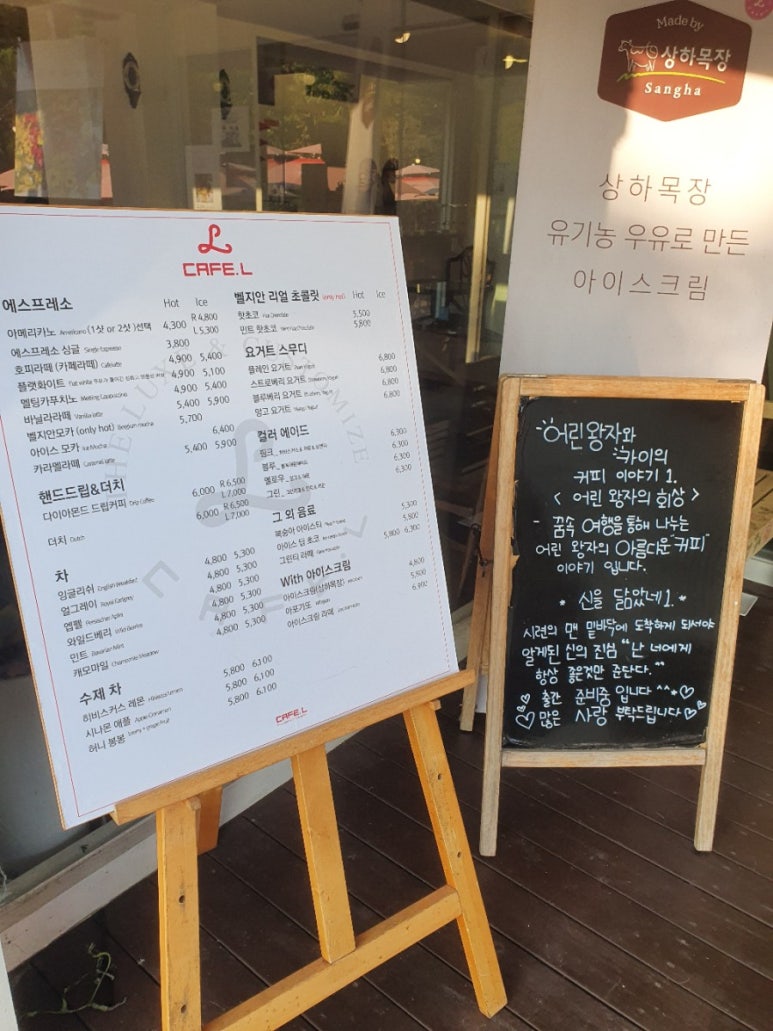 Made by
상하목장
Sangha
상하목장
유기농 우유로 만든
아이스크림
CAFE.L
에스프레소 Hot Ice
아메리카노 Americano (1샷 or 2샷)선택 4,300 R 4,800
L 5,300
에스프레소 싱글 Single Espresso 3,800
호피라떼 (카페라떼) Caffelatte 4,900 5,400
플랫화이트 Flat white 4,900 5,100
멜팅카푸치노 Melting Cappuccino 4,900 5,400
바닐라라떼 Vanilla latte 5,400 5,900
벨지안모카 (only hot) Belgium mocha 5,700
아이스 모카 Ice Mocha 6,400
카라멜라떼 Caramel latte 5,400 5,900
핸드드립&더치
다이아몬드 드립커피 Drip Coffee 6,000 R 6,500
L 7,000
더치 Dutch 6,000 R 6,500
L 7,000
차
잉글리쉬 English Breakfast 4,800 5,300
얼그레이 Royal Earlgrey 4,800 5,300
앱펠 4,800 5,300
와일드베리 4,800 5,300
민트 Bavarian Mint 4,800 5,300
캐모마일 Chamomile Meadow 4,800 5,300
수제 차
히비스커스 레몬 Hibiscus Lemon 5,800 6,100
시나몬 애플 Apple Cinnamon 5,800 6,100
허니 봉봉 5,800 6,100
벨지안 리얼 초콜릿 (only hot) Hot Ice
핫초코 5,500
민트 핫초코 5,800
요거트 스무디
플레인 요거트 6,800
스트로베리 요거트 6,800
블루베리 요거트 6,800
망고 요거트 6,800
컬러 에이드
핑크 6,300
블루 6,300
옐로우 6,300
그린 6,300
그 외 음료
복숭아 아이스티 5,300
아이스 담 초코 5,800
그린티 라떼 5,800 6,300
With 아이스크림
아이스크림(상하목장) 4,800
아포가또 5,800
아이스크림 라떼 6,800
CAFE.L
어린왕자와
카이의
커피 이야기 1.
< 어린 왕자의 회상 >
- 꿈속 여행을 통해 나누는
어린 왕자의 아름다운 "커피"
이야기 입니다.
* 신을 닮았네 1. *
시련의 맨 밑바닥에 도착하게 되서야
알게된 신의 진심 "난 너에게
항상 좋은것만 준단다."
출간 준비중 입니다 ^^*♡
♡많은 사랑 부탁드립니다♡